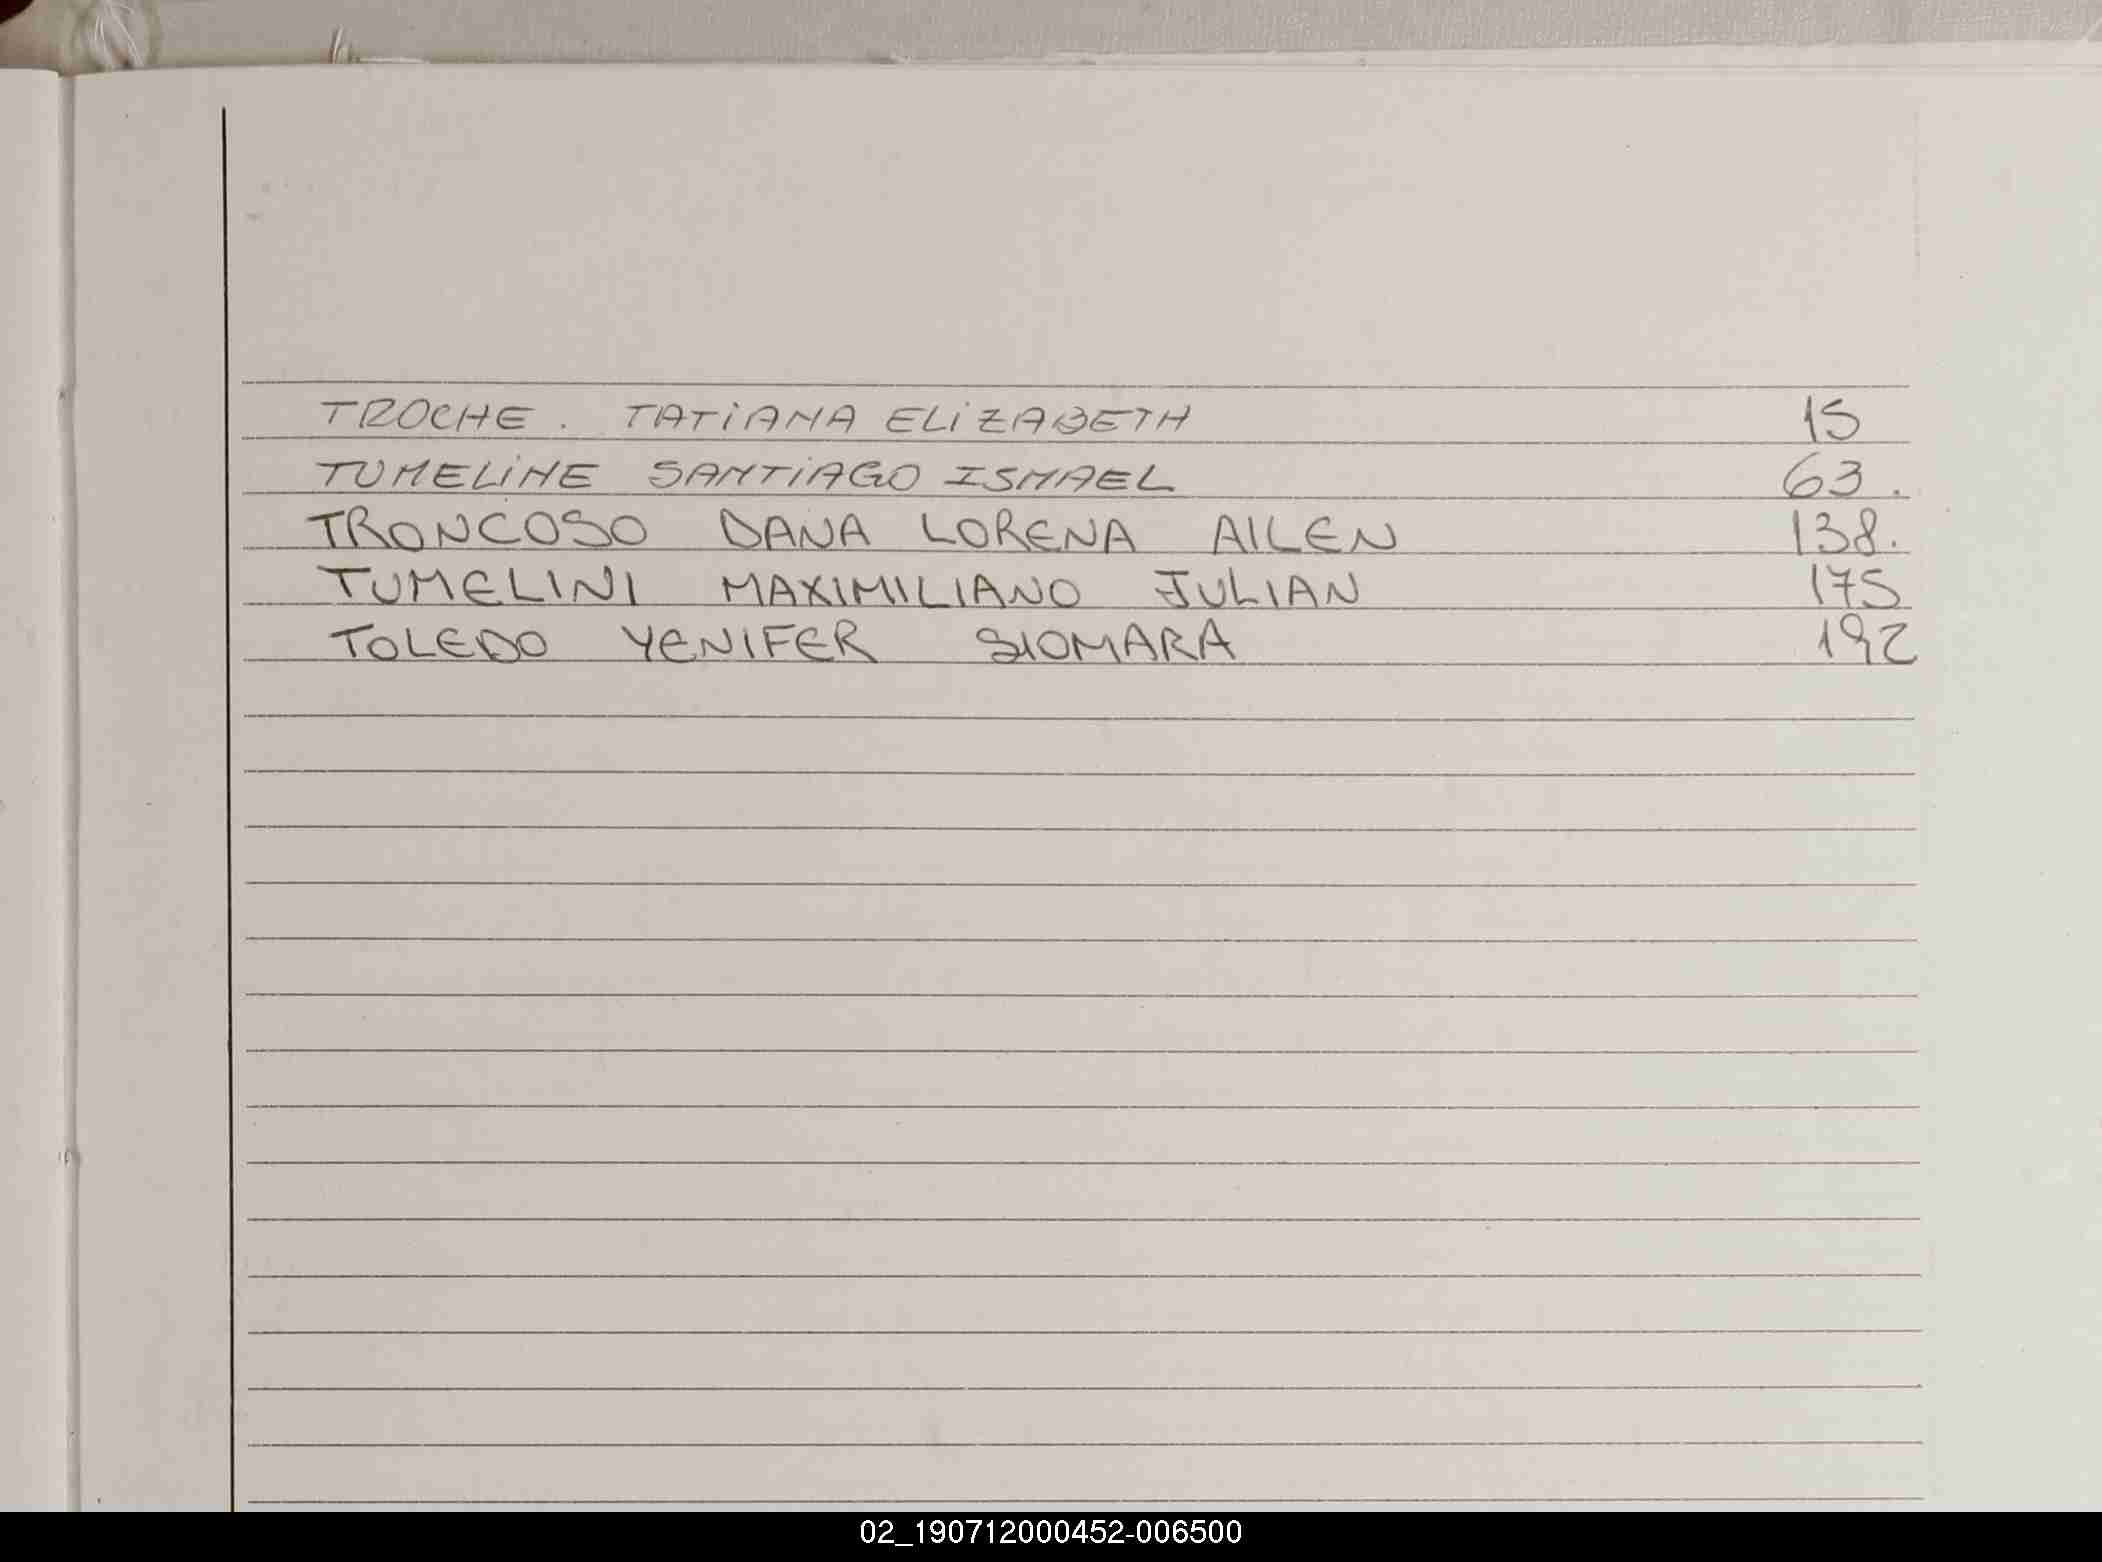 TROCHE. TATiANA ELiZABETH 15
TUMELiNE SANTiAGO ISMAEL 63.
TRONCOSO DANA LORENA AILEN 138.
TUMELINI MAXIMILIANO JULIAN 175
TOLEDO YENIFER SIOMARA 192
02_190712000452-006500